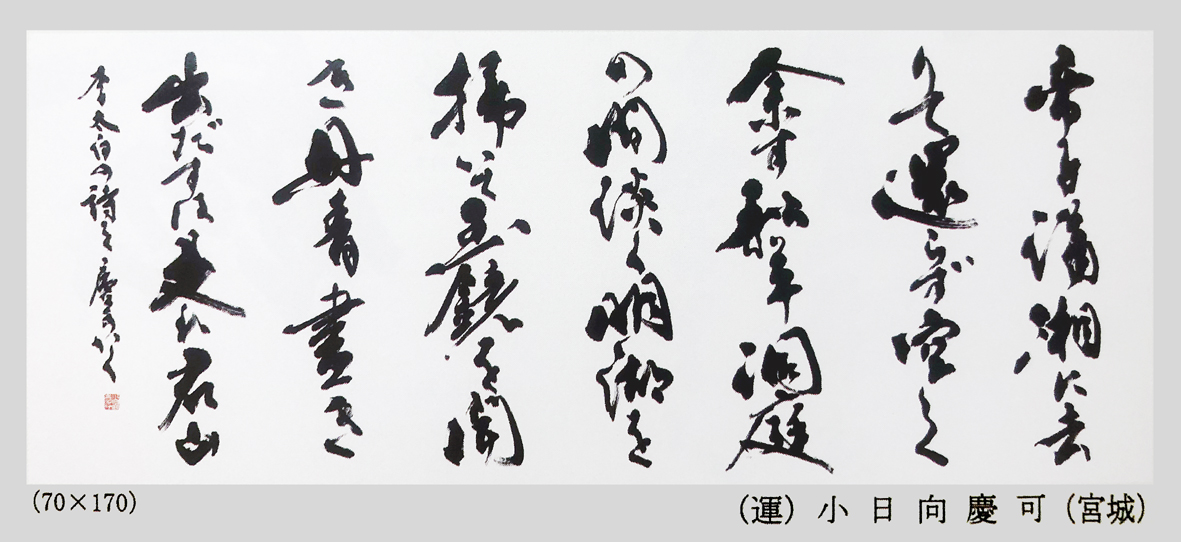 帝子瀟湘に去
りて還らず空しく
余す秋草洞庭
の間淡く明湖を
掃いて玉鏡を開
き丹青畫き
出だすは是れ君山
李太白の詩を 慶可かく
(70×170)
(運) 小日向慶可 (宮城)